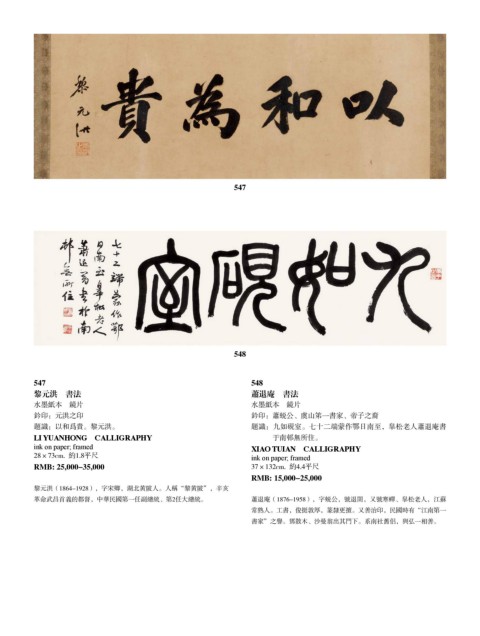 以和為貴
黎元洪
547
九如硯室
548
547
黎元洪 書法
水墨紙本 鏡片
鈐印:元洪之印
題識:以和爲貴。黎元洪。
LI YUANHONG CALLIGRAPHY
ink on paper; framed
28 × 73cm. 約1.8平尺
RMB: 25,000–35,000
黎元洪(1864-1928),字宋卿,湖北黃陂人,人稱“黎黃陂”,辛亥
革命武昌首義的都督,中華民國第一任副總統、第2任大總統。
548
蕭退庵 書法
水墨紙本 鏡片
鈐印:蕭蛻公、虞山第一書家、帝子之裔
題識:九如硯室。七十二端蒙作鄂日南至,皋松老人蕭退庵書
于南邨無所住。
XIAO TUIAN CALLIGRAPHY
ink on paper; framed
37 × 132cm. 約4.4平尺
RMB: 15,000–25,000
蕭退庵(1876-1958),字蛻公,號退闇,又號寒蟬、皋松老人,江蘇
常熟人。工書,俊挺敦厚,篆隸更擅。又善治印,民國時有“江南第一
書家”之譽。鄧散木、沙曼翁出其門下。系南社舊侶,與弘一相善。